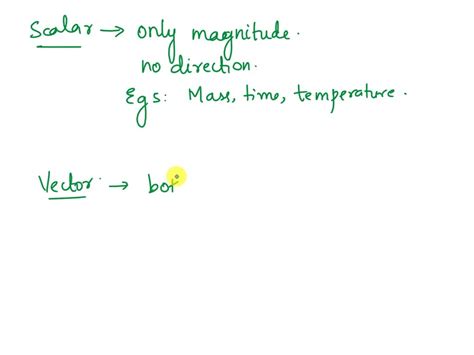 Scalar → only magnitude.
no direction.
Egs: Mass, time, temperature.
Vector → bot